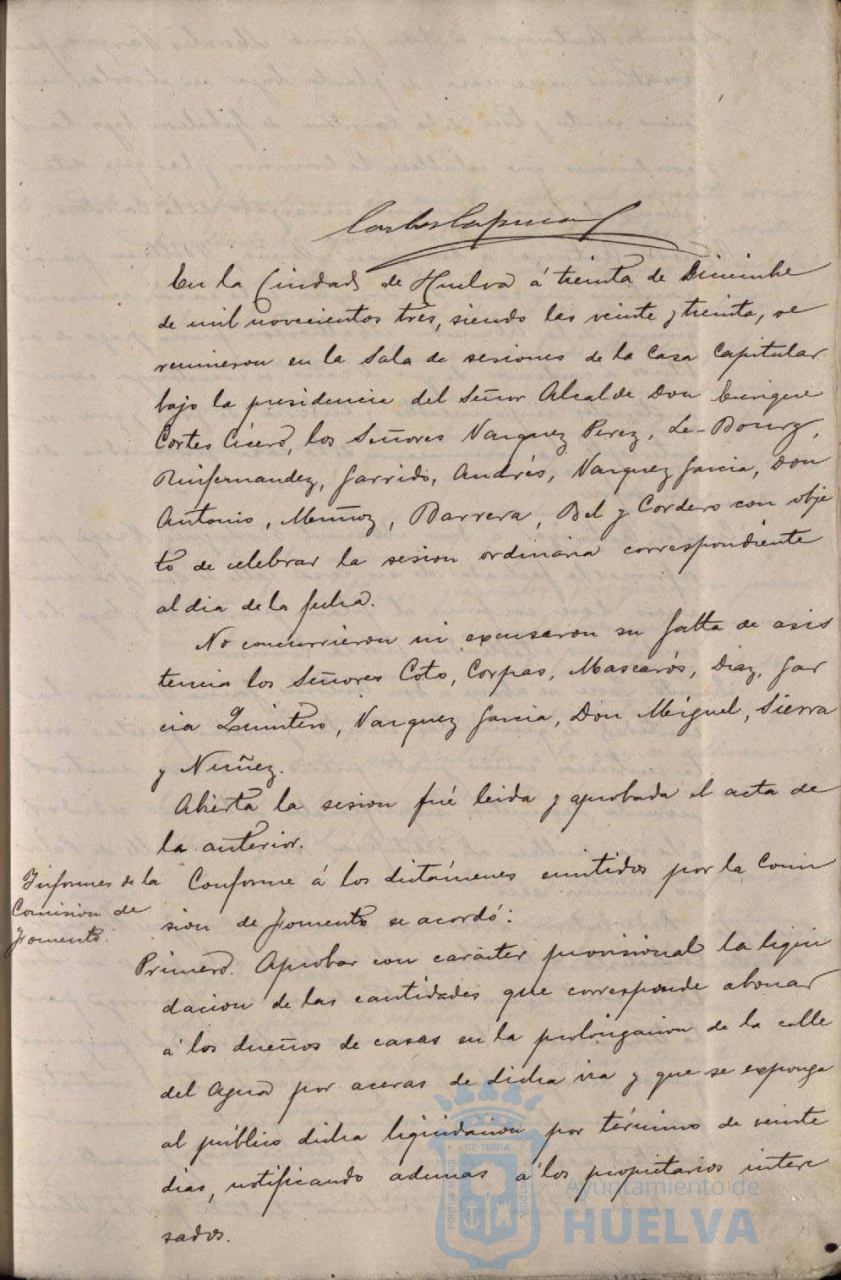 En la Ciudad de Huelva á treinta de Diciembre
de mil novecientos tres, siendo las veinte y treinta, se
reunieron en la Sala de sesiones de la Casa Capitular
bajo la presidencia del Señor Alcalde Don Enrique
Cortes Cicero, los Señores Vazquez Perez, Le-Bourg,
Ruifernandez, Garrido, Andrés, Vazquez Garcia, Don
Antonio, Muñoz, Barrera, Bel y Cordero con obje
to de celebrar la sesion ordinaria correspondiente
al dia de la fecha.
No concurrieron ni excusaron su falta de asis
tencia los Señores Coto, Corpas, Mascarós, Diaz, Gar
cia Quintero, Vazquez Garcia, Don Miguel, Sierra
y Nuñez.
Abierta la sesion fué leida y aprobada el acta de
la anterior.
Informes de la
Comision de
Fomento.
Conforme á los dictámenes emitidos por la Comi
sion de Fomento se acordó:
Primero. Aprobar con carácter provisional la liqui
dacion de las cantidades que corresponde abonar
á los dueños de casas en la prolongacion de la calle
del Agua por aceras de dicha via y que se exponga
al público dicha liquidacion por término de veinte
dias, notificando ademas á los propietarios intere
sados.
Ayuntamiento de
HUELVA